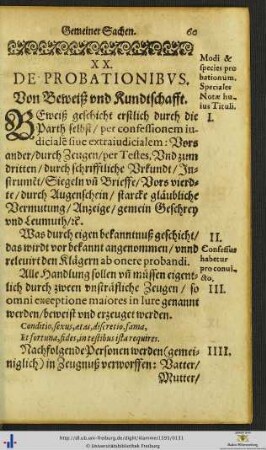 Gemeiner Sachen. 60
XX.
DE PROBATIONIBVS.
Von Beweiß vnd Kundtschafft.
BEweiß geschicht erstlich durch die
Parth selbst / per confessionem iu-
dicialē siue extraiudicialem : Vors
ander / durch Zeugen / per Testes, Vnd zum
dritten / durch schrifftliche Vrkundt / In-
strumēt / Siegeln vn̄ Brieffe / Vors vierd-
te / durch Augenschein / starcke gläubliche
Vermutung / Anzeige / gemein Geschrey
vnd Leumuth / ꝛc.
Was durch eigen bekanntnuß geschicht /
das wirdt vor bekannt angenommen / vnnd
releuirt den Klägern ab onere probandi.
Alle Handlung sollen vn̄ müssen eigent-
lich durch zween vnsträfliche Zeugen / so
omni exceptione maiores in iure genannt
werden / beweist vnd erzeuget werden.
Conditio, sexus, ætas, discretio, fama,
Et fortuna, fides, in testibus ista requires.
Nachfolgende Personen werden (gemei-
niglich) in Zeugnuß verworffen : Vatter /
Mutter /
Modi &
species pro
bationum.
Speciales
Notæ hu-
ius Tituli.
I.
II.
Confessus
habetur
pro conui-
cto.
III.
IIII.
http://dl.ub.uni-freiburg.de/diglit/kammer1593/0131
© Universitätsbibliothek Freiburg
Baden-Württemberg